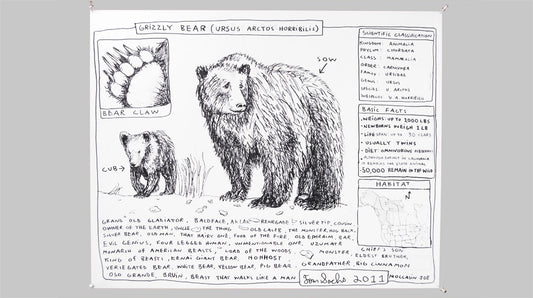 GRIZZLY BEAR (URSUS ARCTOS HORRIBILIS)
BEAR CLAW
SOW
CUB
SCIENTIFIC CLASSIFICATION
KINGDOM: ANIMALIA
PHYLUM: CHORDATA
CLASS: MAMMALIA
ORDER: CARNIVORA
FAMILY: URSIDAE
GENUS: URSUS
SPECIES: U. ARCTOS
U. A. HORRIBILIS
BASIC FACTS
WEIGHS UP TO 1000 LBS
NEWBORNS WEIGH 1 LB
LIFE SPAN UP TO 30 YEARS
USUALLY TWINS
DIET OMNIVOROUS
IN CALIFORNIA
IT REMAINS THE STATE ANIMAL
50,000 REMAIN IN THE WILD
HABITAT
N
OLD GLADIATOR, BALDFACE, RENEGADE SILVER TIP, COUSIN,
OWNER OF THE EARTH, UNCLE, THE THING, OLD CALIFE, THE MONSTER,
SILVER BEAR, OLD MAN, THAT HAIRY ONE, FOOD OF THE FIRE, OLD EPHRAIM,
EVIL GENIUS, FOUR LEGGED HUMAN, UNMENTIONABLE ONE, UZUMATE
MONARCH OF AMERICAN BEASTS, LORD OF THE WOODS, MONSTER, CHIEF'S SON
KING OF BEASTS, KENAI GIANT BEAR, HOHHOST, ELDEST BROTHER,
VERIEGATED BEAR, WHITE BEAR, YELLOW BEAR, PIG BEAR, GRANDFATHER, BIG CINNAMON
OSO GRANDE, BRUIN, BEAST THAT WALKS LIKE A MAN
Tom Sachs 2011
MOCCASIN JOE